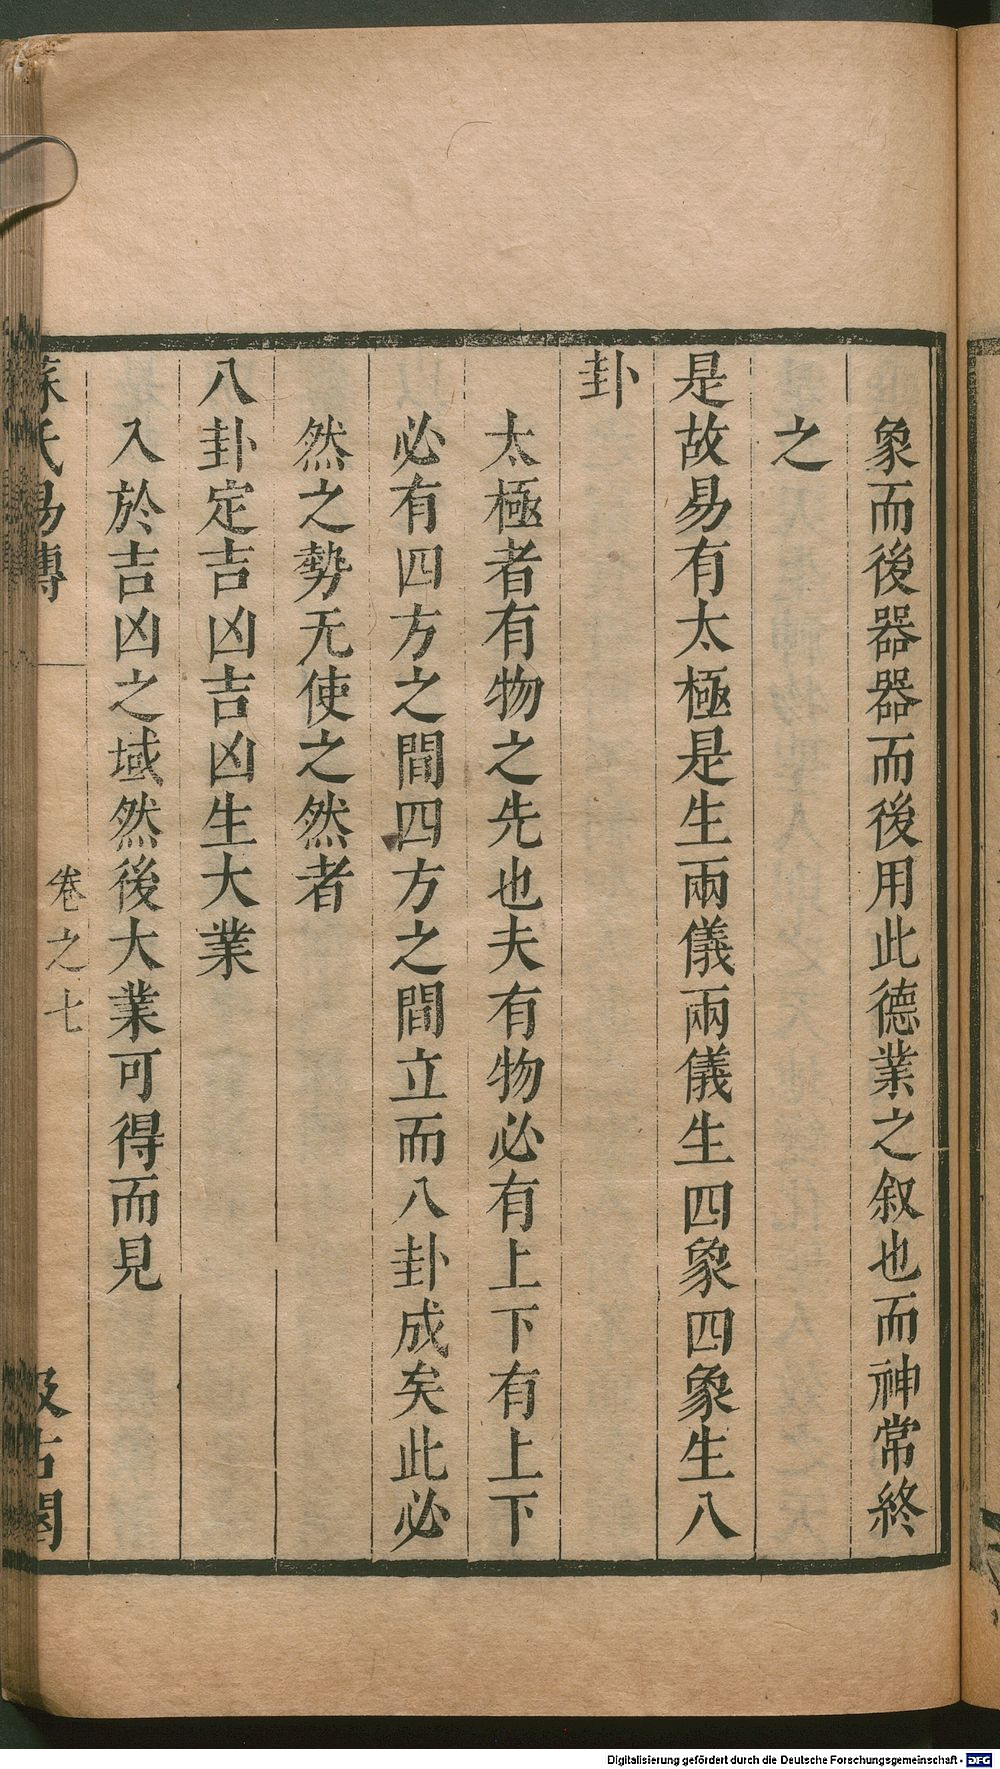 象而後器器而後用此德業之叙也而神常終
之
是故易有太極是生兩儀兩儀生四象四象生八
卦
太極者有物之先也夫有物必有上下有上下
必有四方之間四方之間立而八卦成矣此必
然之勢无使之然者
八卦定吉凶吉凶生大業
入於吉凶之域然後大業可得而見
蘇氏易傳
卷之七
汲古閣
Digitalisierung gefördert durch die Deutsche Forschungsgemeinschaft - DFG